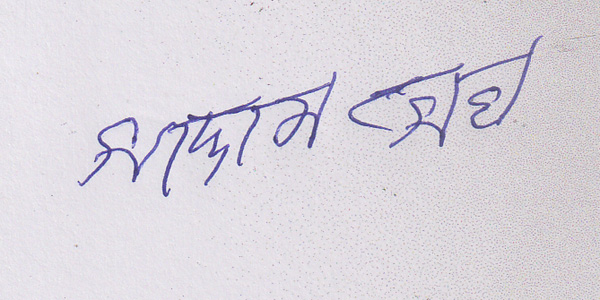 সাদ্দাম সেখ